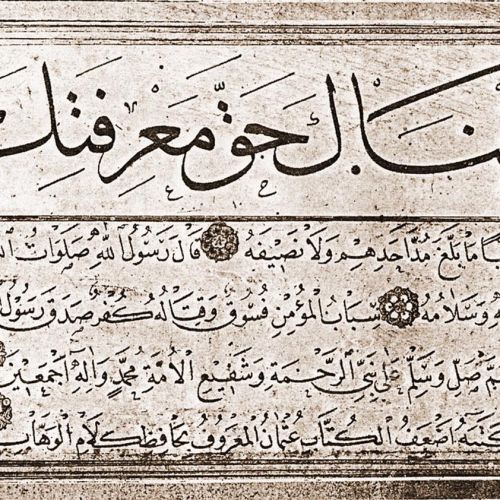 ـنال حق معرفتك
ما بلغ مد احدهم ولا نصيفه قال رسول الله صلوات
وسلامه سباب المؤمن فسوق وقتاله كفر صدق رسول
صل وسلم على نبي الرحمة وشفيع الامة محمد واله اجمعين
كتبه اضعف الكتاب عثمان المعروف بحافظ كلام الوهاب